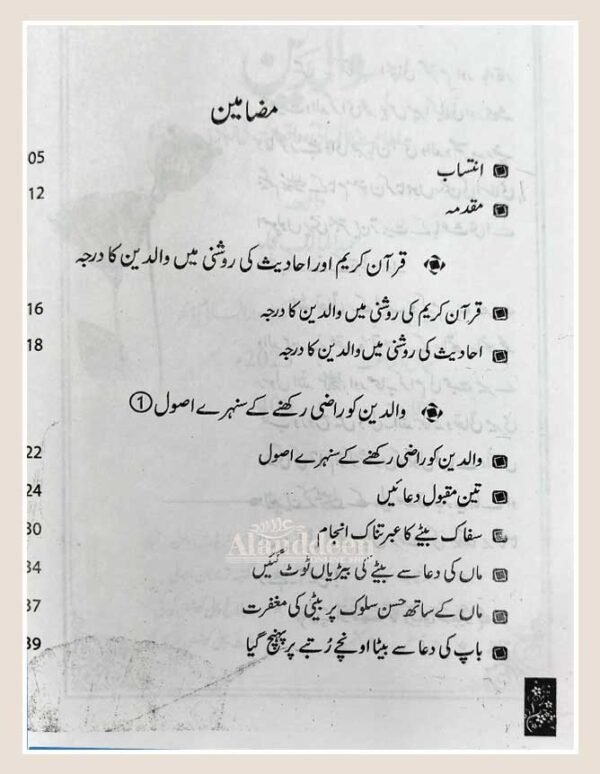 مضامین
انتساب 05
مقدمہ 12
قرآن کریم اور احادیث کی روشنی میں والدین کا درجہ
قرآن کریم کی روشنی میں والدین کا درجہ 16
احادیث کی روشنی میں والدین کا درجہ 18
والدین کو راضی رکھنے کے سنہرے اصول ①
والدین کو راضی رکھنے کے سنہرے اصول 22
تین مقبول دعائیں 24
سفاک بیٹے کا عبرتناک انجام 30
Alanddeen
ماں کی دعا سے بیٹے کی بیڑیاں ٹوٹ گئیں 34
ماں کے ساتھ حسن سلوک پر بیٹی کی مغفرت 37
باپ کی دعا سے بیٹا اونچے رُتبے پر پہنچ گیا 39